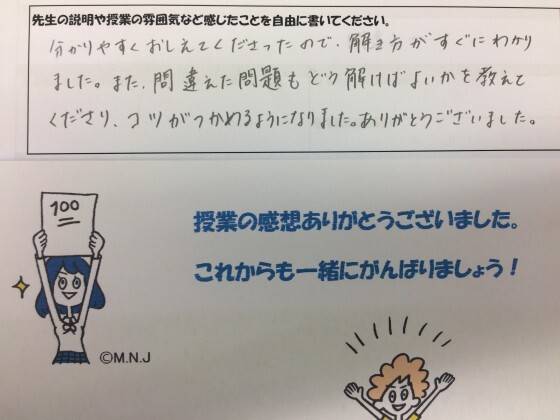 先生の説明や授業の雰囲気など感じたことを自由に書いてください。
分かりやすくおしえてくださったので、解き方がすぐにわかり
ました。また、間違えた問題もどう解けばよいかを教えて
くださり、コツがつかめるようになりました。ありがとうございました。
100
授業の感想ありがとうございました。
これからも一緒にがんばりましょう！
©M.N.J